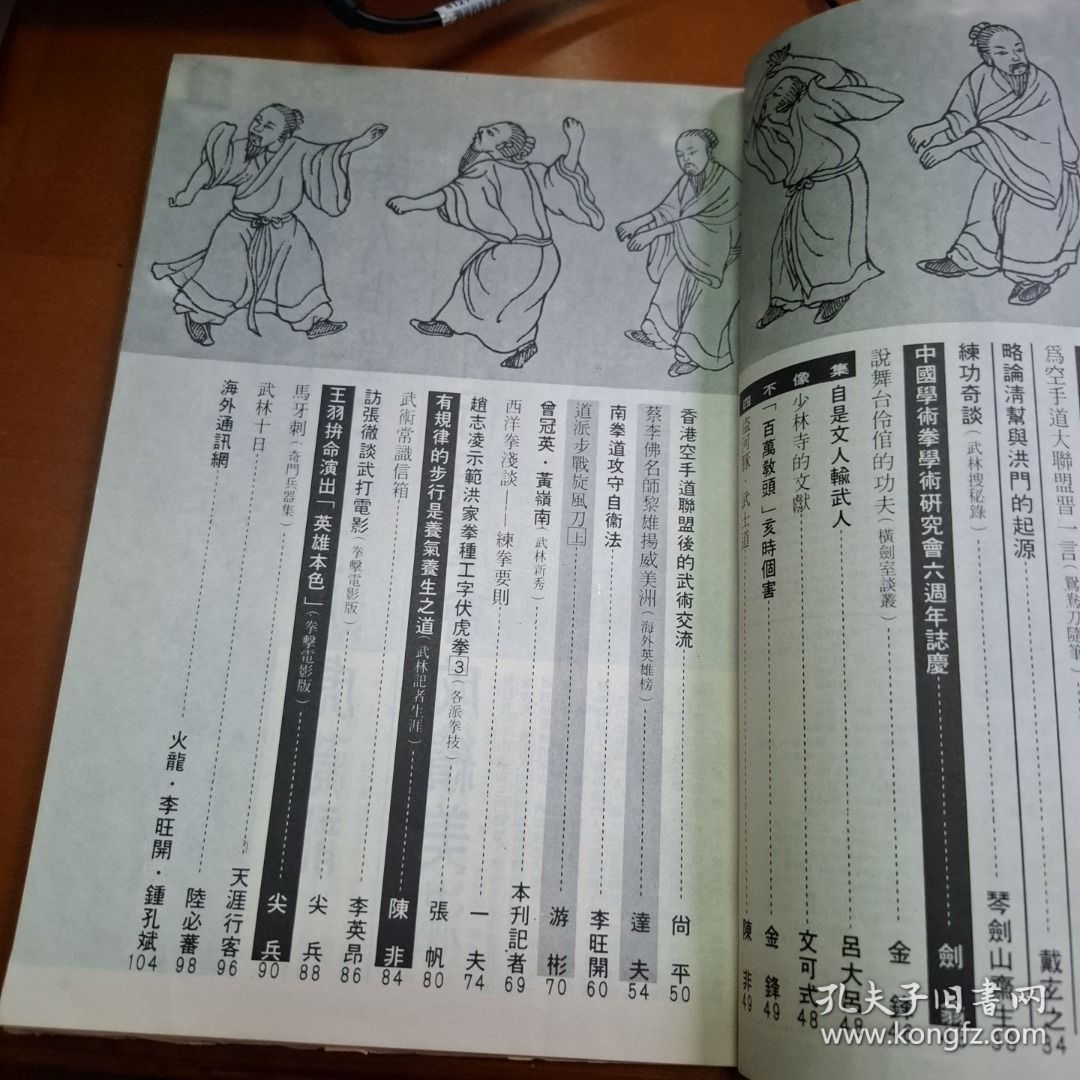 為空手道大聯盟晋一言(鴛鴦刀隨筆)
戴玄之 34
略論清幫與洪門的起源
琴劍山齋主
練功奇談(武林搜秘錄)
中國學術拳學術研究會六週年誌慶
劍
說舞台伶倌的功夫(橫劍室談叢)
金鋒
四不像集
自是文人輸武人
呂大呂 48
少林寺的文獻
文可式 48
「百萬教頭」亥時個害
金鋒 49
武士道
陳非 49
香港空手道聯盟後的武術交流
尙平 50
蔡李佛名師黎雄揚威美洲(海外英雄榜)
達夫 54
南拳道攻守自衞法
李旺開 60
道派步戰旋風刀上
游彬 70
曾冠英·黃嶺南(武林新秀)
本刊記者 69
西洋拳淺談——練拳要則
一夫 74
趙志凌示範洪家拳種工字伏虎拳3(各派拳技)
張帆 80
有規律的步行是養氣養生之道(武林記者生涯)
陳非 84
武術常識信箱
訪張徹談武打電影(拳擊電影版)
李英昂 86
王羽拚命演出「英雄本色」(拳擊電影版)
尖兵 88
馬牙刺(奇門兵器集)
尖兵 90
武林十日
天涯行客 96
海外通訊網
陸必蕃 98
火龍·李旺開·鍾孔斌 104
孔夫子旧書网
www.kongfz.com